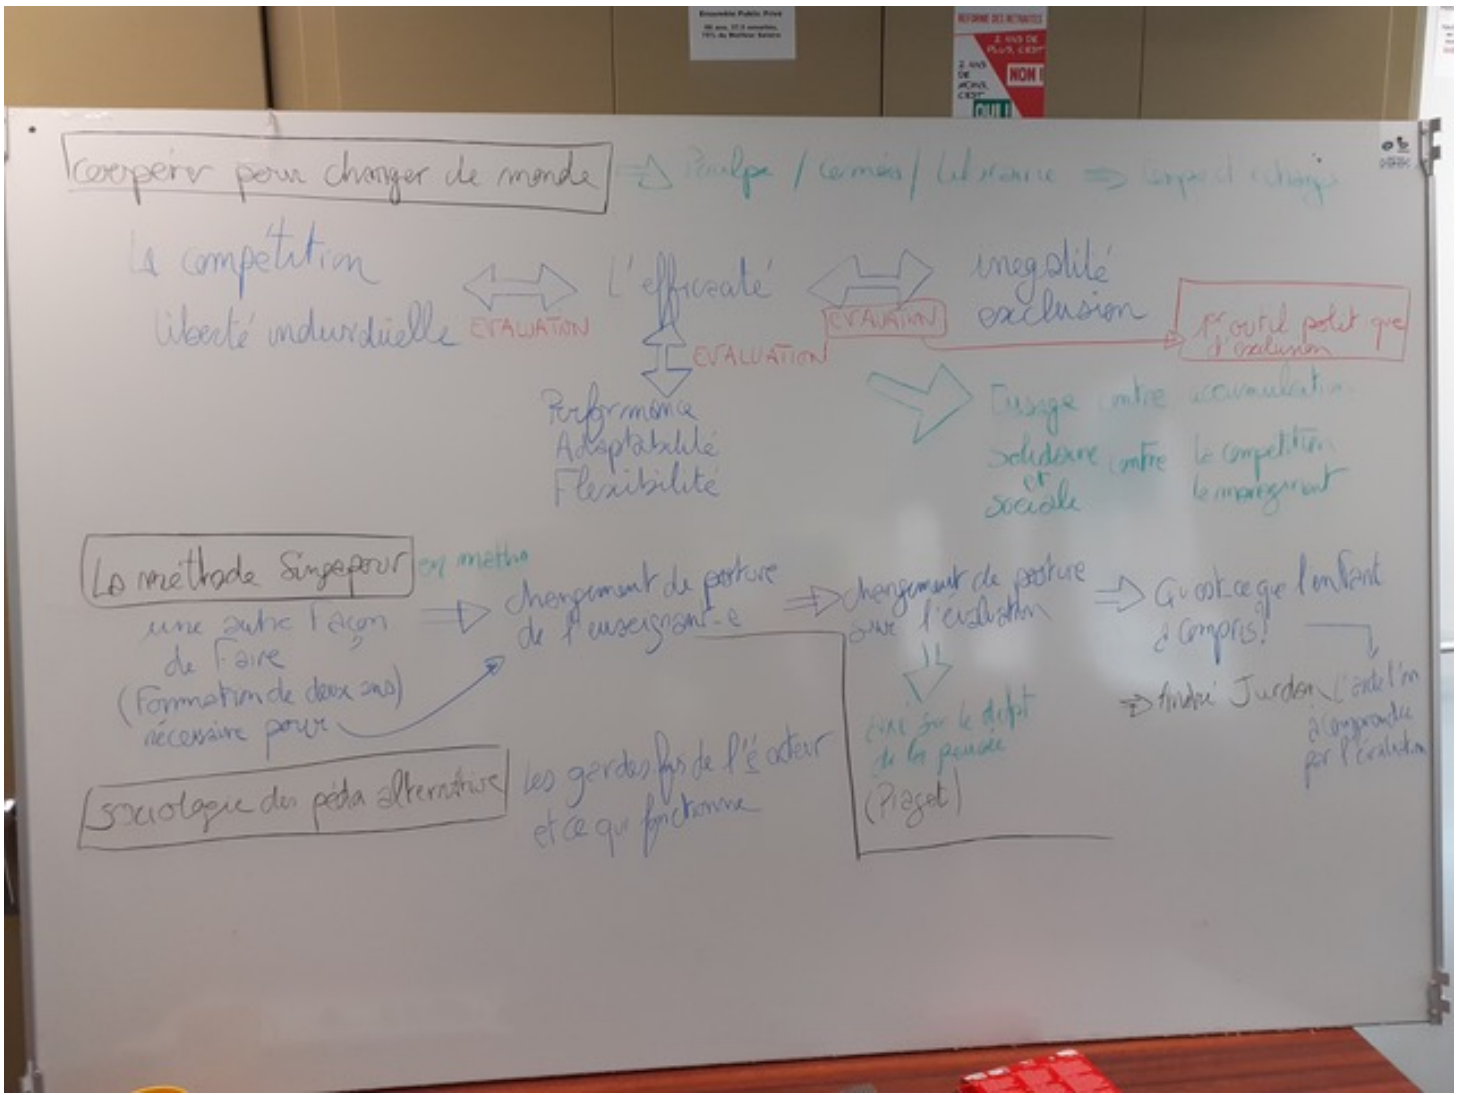 Ensemble Public Privé
REFORME DES RETRAITES
2 ANS DE
PLUS, C'EST
NON !
2 ANS
DE
MOINS,
C'EST
OUI !
coopérer pour changer de monde
/ Librairie
La compétition
liberté individuelle
EVALUATION
L'efficacité
EVALUATION
Performance
Adaptabilité
Flexibilité
EVALUATION
inégalité
exclusion
outil politique
d'exclusion
L'usage contre accumulation
solidaire contre la compétition
et
sociale
le management
La méthode Singapour en maths
une autre façon
de Faire
(Formation de deux ans)
nécessaire pour
changement de posture
de l'enseignant-e
changement de posture
sur l'évaluation
Qu'est-ce que l'enfant
a compris?
sur le
de la pensée
(Piaget)
André Jurdon
à comprendre
par l'évaluation
sociologie des péda alternative
Les gardes fous de l'é acteur
et ce qui fonctionne